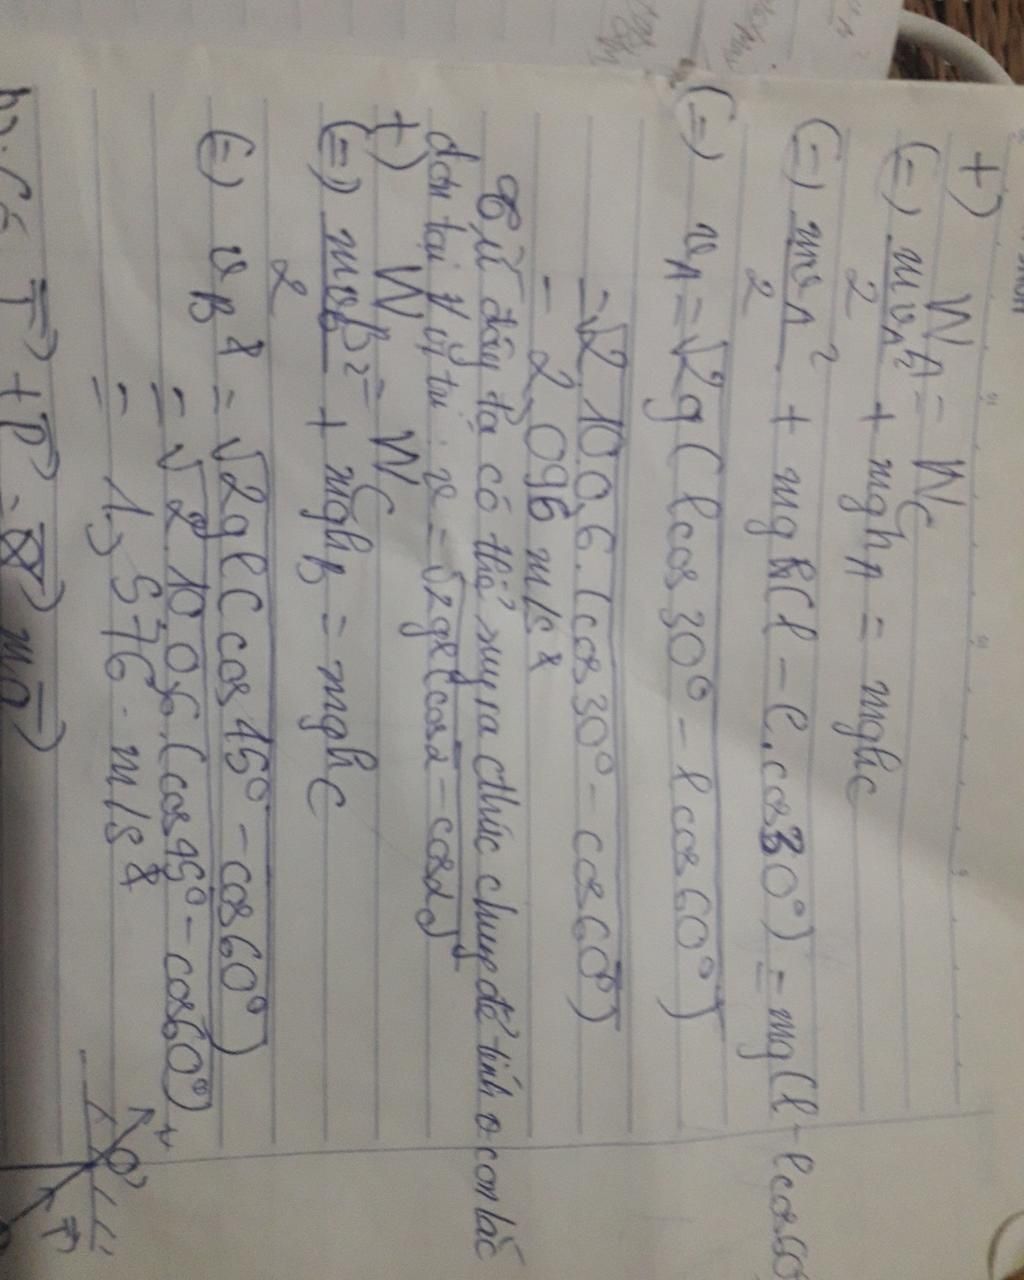 +) W_A = W_C
(=) mv_A²/2 + mgh_A = mgh_C
(=) mv_A²/2 + mg(l - l.cos30°) = mg(l - lcos60
(=) v_A = √2g(lcos30° - lcos60°)
= √2.10.0,6.(cos30° - cos60°)
= 2,096 m/s
Từ đây ta có thể suy ra cthức chung để tính v con lắc
đơn tại 1 vị trí: v = √2gl(cosα - cosα₀)
+) W_B = W_C
(=) mv_B²/2 + mgh_B = mgh_C
(=) v_B = √2gl(cos45° - cos60°)
= √2.10.0,6.(cos45° - cos60°)
= 1,576 m/s
b). Có T + P = ma
T